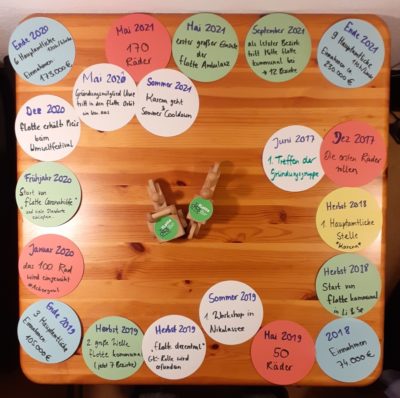 Juni 2017
1. Treffen der
Gründungsgruppe
Dez 2017
Die ersten Räder
rollen
Herbst 2018
1 Hauptamtliche
Stelle
Herbst 2018
Start von
flotte kommunal
in Li &
2018
Einnahmen
74.000 €
Mai 2019
50
Räder
Sommer 2019
1. Workshop in
Nikolassee
Herbst 2019
"flotte dezentral"
GK-Rolle wird
erfunden
Herbst 2019
2. große Welle
flotte kommunal
(jetzt 7 Bezirke)
Ende 2019
3 Hauptamtliche
Einnahmen
105.000 €
Januar 2020
das 100. Rad
wird eingeweiht
Frühjahr 2020
Start von
"flotte Coronahilfe"
und viele Standorte
Dez 2020
flotte erhält Preis
beim
Umweltfestival
Ende 2020
6 Hauptamtliche
Einnahmen
173.000 €
Mai 2020
Gründungsmitglied
tritt in den flotte Orbit
Mai 2021
170
Räder
Sommer 2021
geht
Sommer Cooldown
Mai 2021
erster großer Einsatz
der
flotte Ambulanz
September 2021
als letzter Bezirk
tritt Mitte flotte
kommunal bei
→ 12 Bezirke
Ende 2021
9 Hauptamtliche
Einnahmen
230.000 €